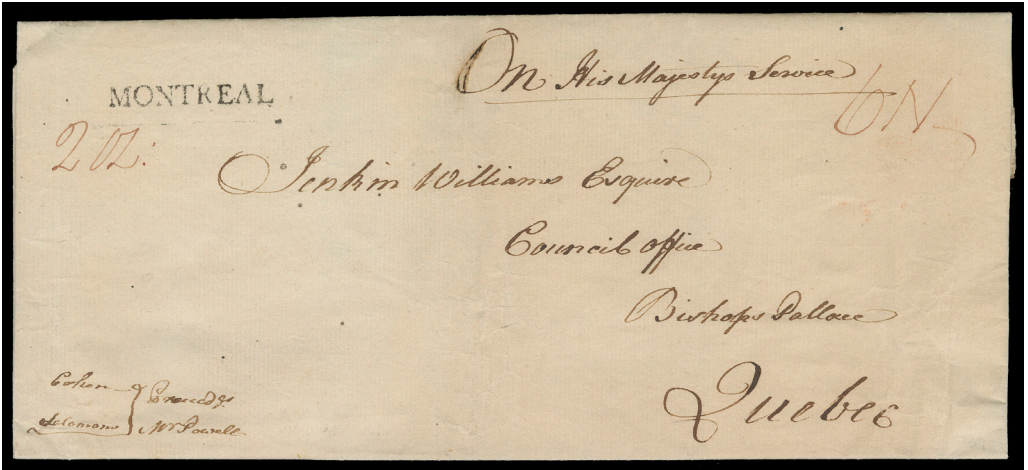 On His Majestys Service
MONTREAL
6N
2 oz:
Jenkin Williams Esquire
Council office
Bishops Pallace
Quebec
Cohen
Solomons
Mr Powell